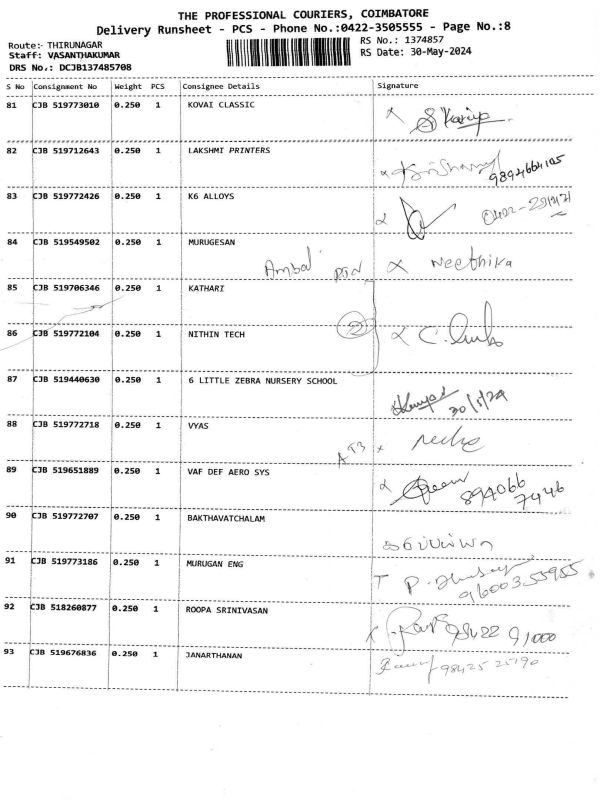 THE PROFESSIONAL COURIERS, COIMBATORE
Delivery Runsheet - PCS - Phone No.:0422-3505555 - Page No.:8
Route:- THIRUNAGAR RS No.: 1374857
Staff: VASANTHAKUMAR RS Date: 30-May-2024
DRS No.: DCJB137485708
S No Consignment No Weight PCS Consignee Details Signature
81 CJB 519773010 0.250 1 KOVAI CLASSIC
82 CJB 519712643 0.250 1 LAKSHMI PRINTERS
9894664105
83 CJB 519772426 0.250 1 K6 ALLOYS
84 CJB 519549502 0.250 1 MURUGESAN
Ambal x Neethika
85 CJB 519706346 0.250 1 KATHARI
2
86 CJB 519772104 0.250 1 NITHIN TECH
87 CJB 519440630 0.250 1 6 LITTLE ZEBRA NURSERY SCHOOL
30/5/24
88 CJB 519772718 0.250 1 VYAS
x
89 CJB 519651889 0.250 1 VAF DEF AERO SYS
894066
7446
90 CJB 519772707 0.250 1 BAKTHAVATCHALAM
91 CJB 519773186 0.250 1 MURUGAN ENG
9600355955
92 CJB 518260877 0.250 1 ROOPA SRINIVASAN
98422 91000
93 CJB 519676836 0.250 1 JANARTHANAN
98425 25190